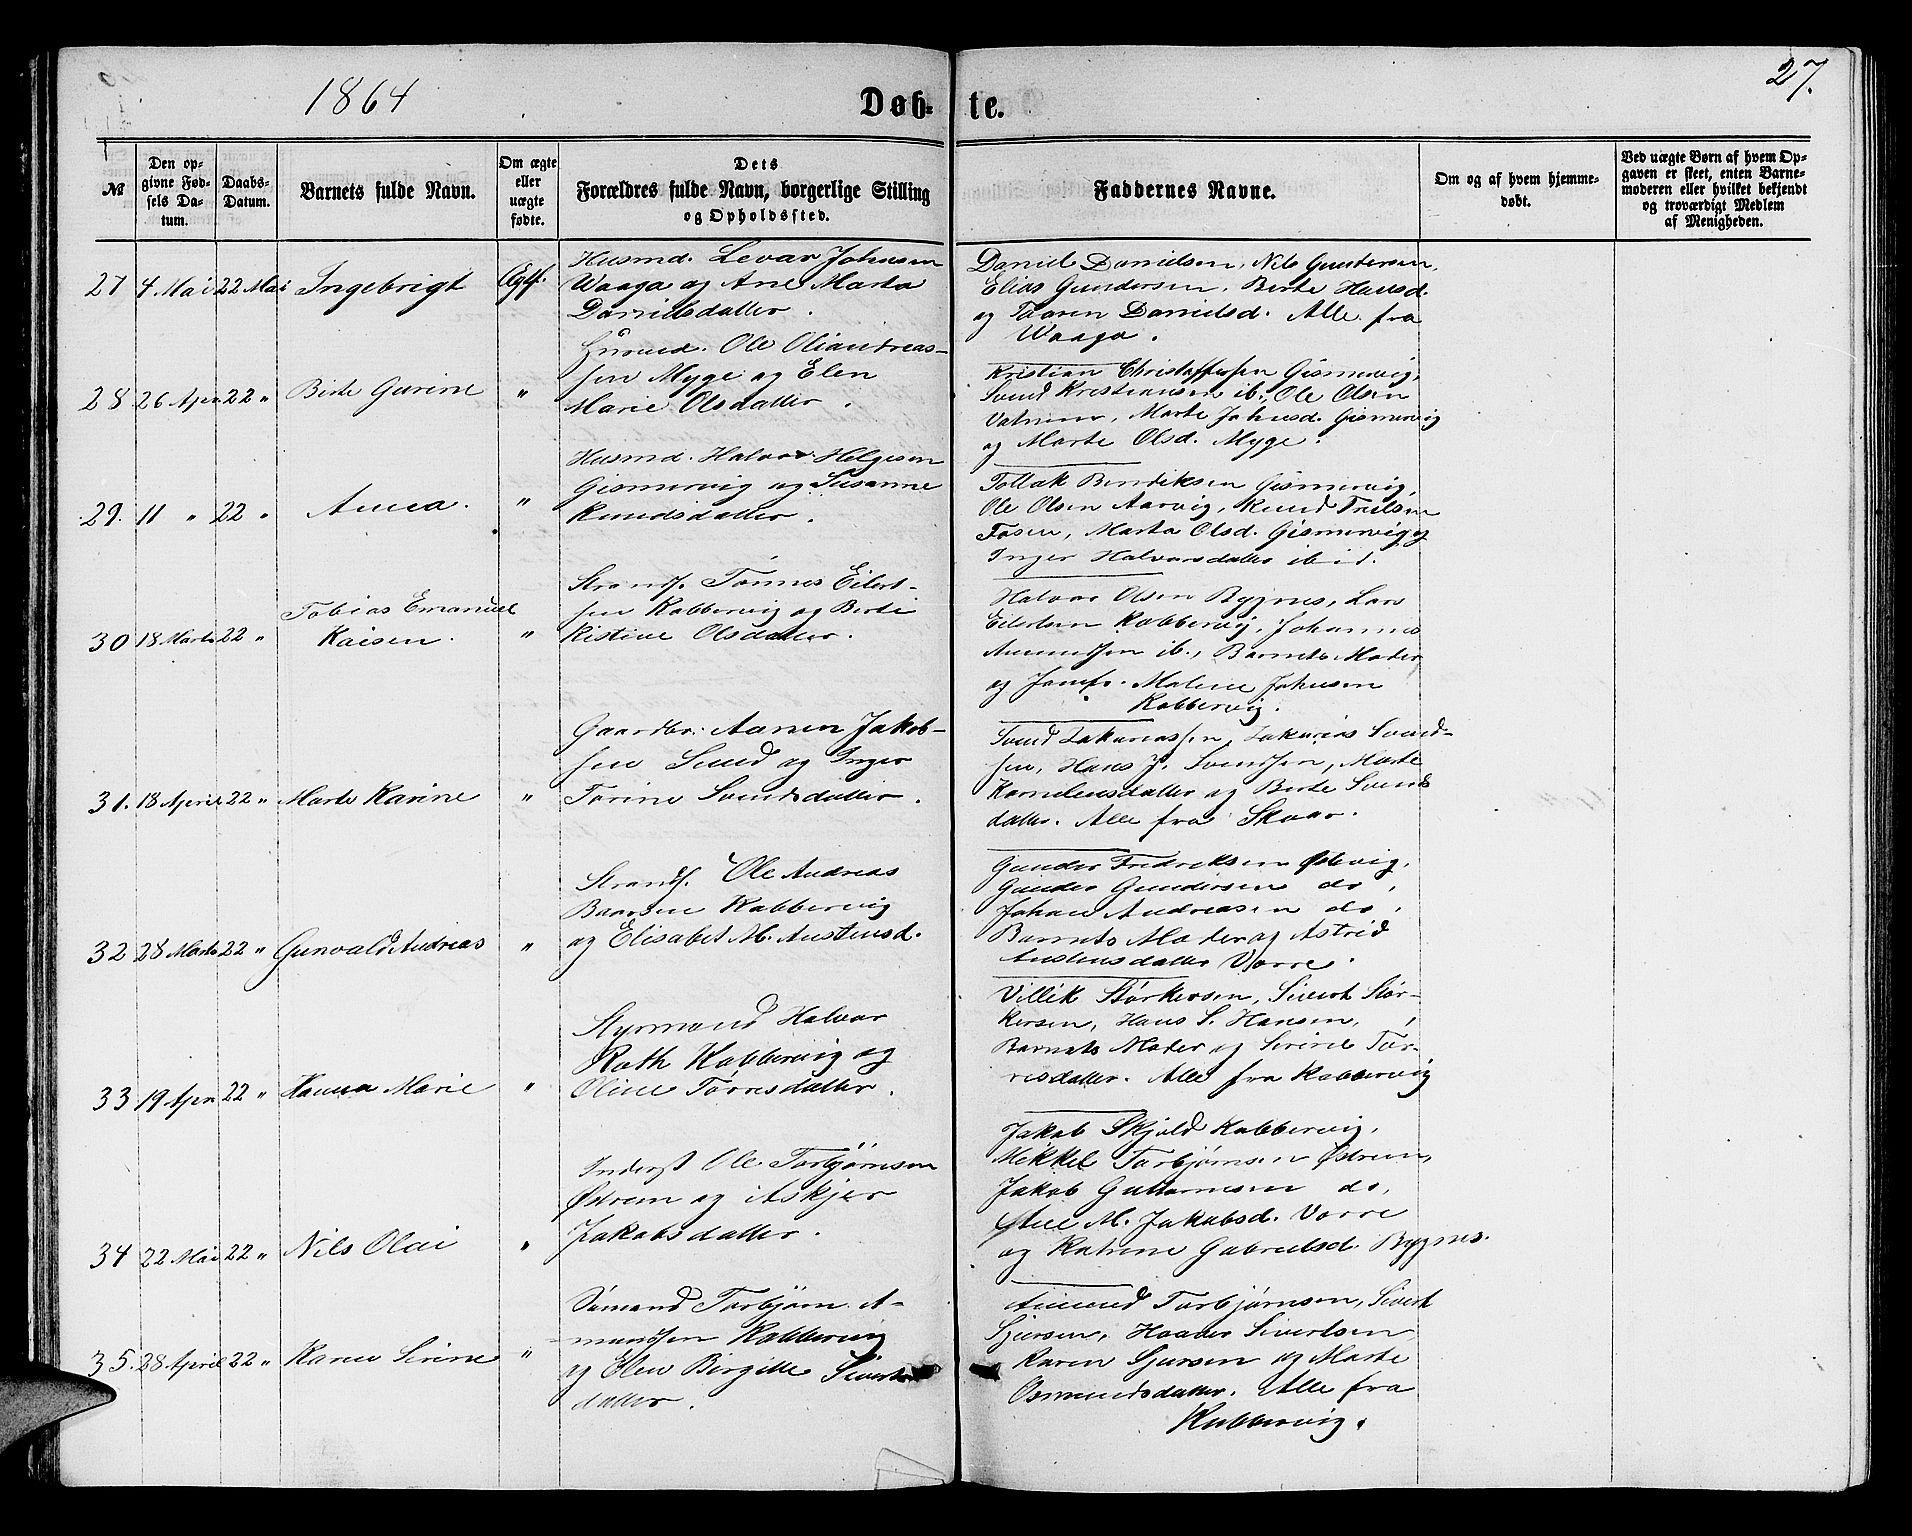 1864
Døb-
te.
27.
№
Den op-
givne Fød-
sels Da-
tum.
Daabs-
Datum.
Barnets fulde Navn.
Om ægte
eller
uægte
fødte.
Dets
Forældres fulde Navn, borgerlige Stilling
og Opholdssted.
Faddernes Navne.
Om og af hvem hjemme-
døbt.
Ved uægte Børn af hvem Op-
gaven er skeet, enten Barne-
moderen eller hvilket bekjendt
og troværdigt Medlem
af Menigheden.
27 4 Mai 22 Mai Ingebrigt Ægtf.
Husmd. Levar Johnsen
Waaga og Ane Marta
Danielsdatter.
Daniel Danielsen, Nils Gundersen,
Elias Gundersen, Berte Hansd.
og Thoren Danielsd. Alle fra
Waaga.
28 26 Apr 22 " Berte Gurine "
Husmd. Ole Oliandreas-
sen Myge og Elen
Marie Olsdatter.
Kristian Christoffersen Gismervig,
Svend Kristiansen ib., Ole Olsen
Marte Johnsd. Gismervig
og Marte Olsd. Myge.
29. 11 " 22 " Anna. "
Husmd. Halvor Helgesen
Gismervig og Susanne
Knudsdatter.
Tollak Bendiksen Gismervig,
Ole Olsen Aarvig, Knud
Fosen, Marta Olsd. Gismervig og
Inger Halvorsdatter ibid.
30 18 Marts 22 " Tobias Emanuel
Kaisen. "
Strands. Tønnes Eilert-
sen Kobbervig og Berte
Kistine Olsdatter.
Halvor Olsen Bygnes, Lars
Eilertsen Kobbervig, Johannes
Amundsen ib., Barnets Moder
og Jomfr. Malene Johnsen
Kobbervig.
31. 18 April 22 " Marte Karine "
Gaardbr. Aanen Jakob-
sen Sund og Inger
Torine Svendsdatter.
Svend Zakariassen, Zakarias Svend-
sen, Hans J. Svendsen, Marte
Korneliusdatter og Berte Svends
datter. Alle fra Skaar.
32 28 Marts 22 " Gunvald Andreas "
Strands. Ole Andreas
Baarsen Kobbervig
og Elisabet M. Austensd.
Gunder Fredriksen
Gunder Gundersen do,
Johan Andreasen do,
Barnets Moder og Astrid
Austensdatter Vorre.
33 19 Apr 22 " Hanna Marie "
Styrmand Halvor
Roth Kobbervig og
Oline Tørresdatter.
Villik Størkersen, Sivert Stør-
kersen, Hans S. Hansen,
Barnets Moder og Serine Tør-
resdatter. Alle fra Kobbervig
34 22 Mai 22 " Nils Olai "
Inderst Ole Torbjørnsen
Østrem og Askjer
Jakobsdatter.
Jakob Skjold Kobbervig,
Mikkel Torbjørnsen Østrem,
Jakob Guttormsen do,
M. Jakobsd. Vorre
og Katrine Gabrielsd. Bygnes.
35. 28 April 22 " Karen Serine "
Sømand Torbjørn A-
mundsen Kobbervig
og Elen Birgitte Siverts
datter.
Amund Torbjørnsen, Sivert
Sjursen, Haaver Sivertsen
Karen Sjursen og Marte
Osmundsdatter. Alle fra
Kobbervig.